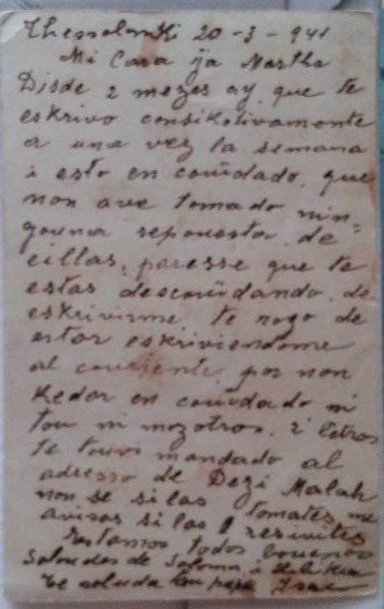 Thessaloniki 20-3-941
Mi Cara ija Martha
Disde 2 mezes ay que te
eskrivo consikotivamente
a una vez la semana
i esto en coudado, que
non ave tomado nin=
gouna repouesta de
eillas, paresse que te
estas descoudando de
eskrivirme te rogo de
estar eskriviendome
al couriente por non
kedar en coudado ni
tou ni mozotros. 2 letras
te touvi mandado al
adresso de Dezi Malah
non se si las tomates me
avisas si las resivites
Estamos todos bouenos
Saloudes de Saloma i
te saluda tou papa Isac